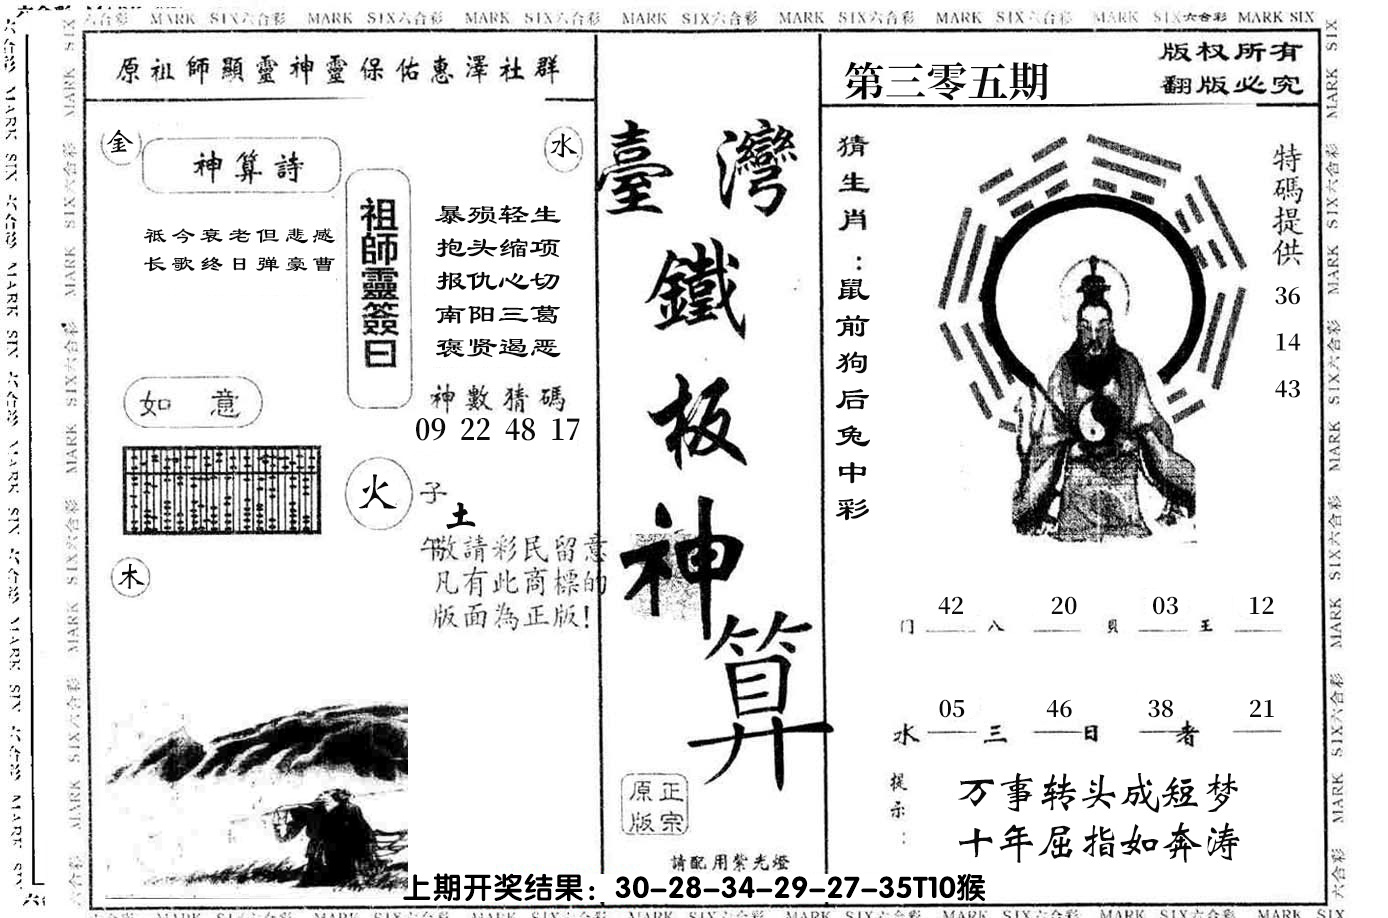 原祖師顯靈神靈保佑惠澤社群
金
神算詩
水
祗今衰老但悲感
长歌终日弹豪曹
祖師靈簽曰
暴殒轻生
抱头缩项
报仇心切
南阳三葛
褒贤遏恶
神數猜碼
09 22 48 17
如意
火
子
土
午
敬請彩民留意
凡有此商標的
版面為正版!
木
臺灣
鐵
板
神
算
原正
版宗
請配用紫光燈
第三零五期
版权所有
翻版必究
猜生肖:鼠前狗后兔中彩
特碼提供
36
14
43
42 20 03 12
门 八 貝 王
05 46 38 21
水 三 日 者
提示:
万事转头成短梦
十年屈指如奔涛
上期开奖结果：30-28-34-29-27-35T10猴
MARK SIX六合彩 MARK SIX六合彩 MARK SIX六合彩 MARK SIX六合彩 MARK SIX六合彩 MARK SIX六合彩 MARK SIX六合彩 MARK SIX